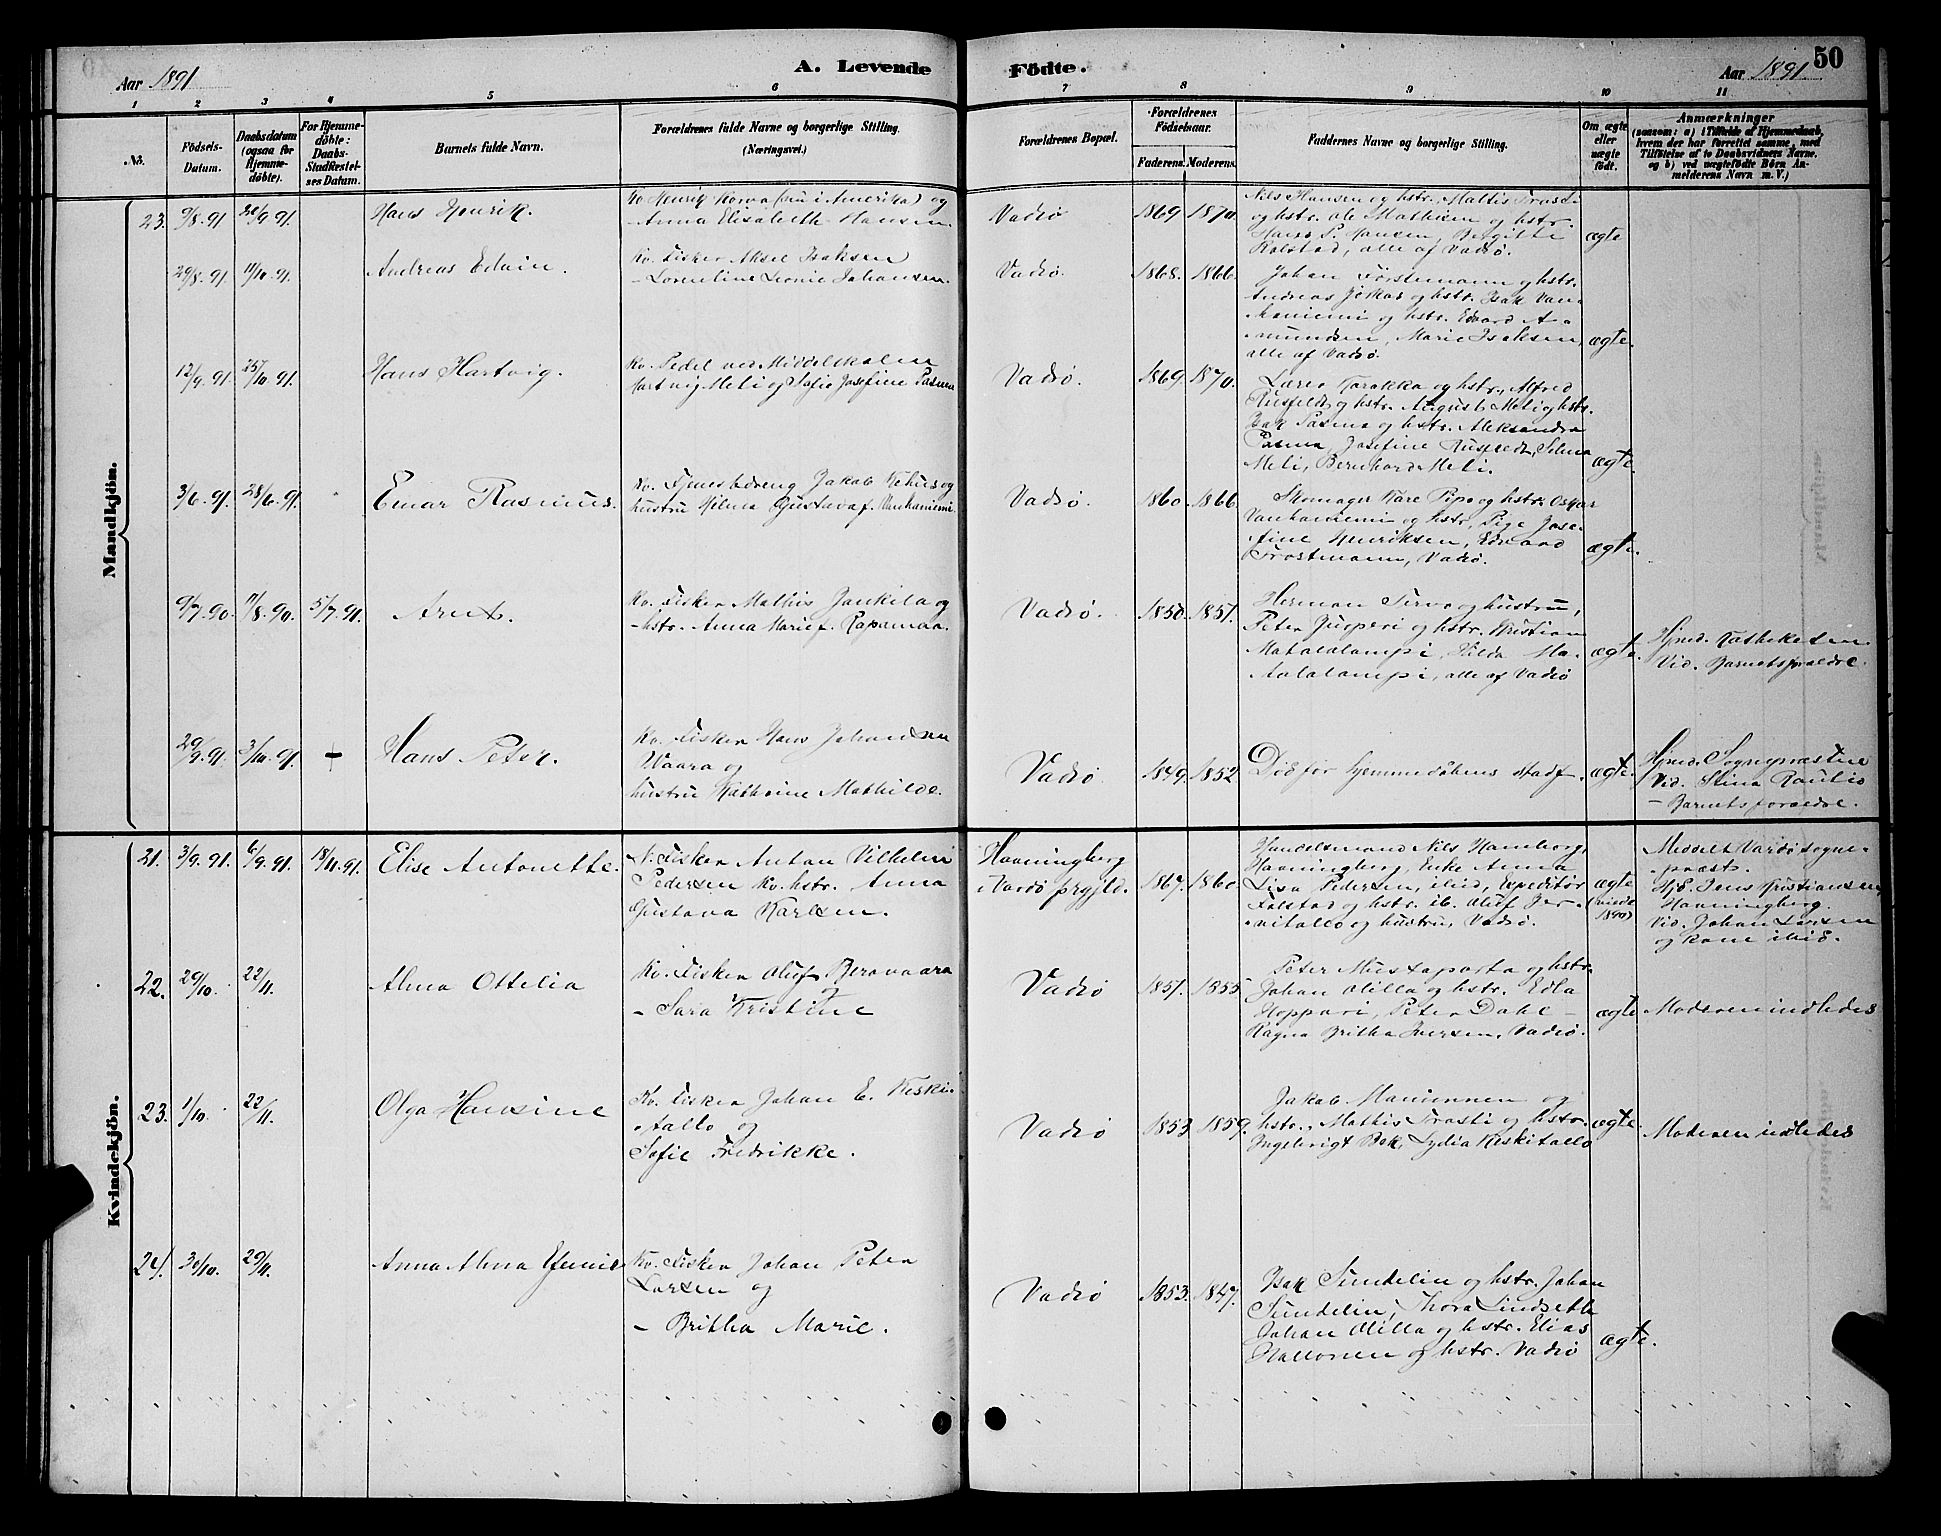 Aar 1891
A. Levende Fødte.
Aar 1891
50
1 2 3 4 5 6 7 8 9 10 11
No.
Fødsels-Datum.
Daabsdatum (ogsaa for Hjemme-døbte).
For Hjemme-døbte: Daabs-Stadfæstel-ses Datum.
Barnets fulde Navn.
Forældrenes fulde Navne og borgerlige Stilling. (Næringsvei.)
Forældrenes Bopæl.
Forældrenes Fødselsaar.
Faderens. Moderens.
Faddernes Navne og borgerlige Stilling.
Om ægte eller uægte født.
Anmærkninger
(saasom: a) i Tilfælde af Hjemmedaab, hvem der har forrettet samme, med Tilføielse af to Daabsvidners Navne, og b) ved uægtefødte Børn Anmelderens Navn m. V.)
Mandkjøn.
23. 9/8.91. 20/9.91. Hans Henrik.
Kv. Henrik Korva (nu i Amerika) og
Anna Elisabeth Hansen.
Vadsø 1869 1870.
Nils Hansen og hstr., Mattis Trosti
og hstr. Ole Mathisen og hstr.
Hans P. Hansen, Bergitte
Rolstad, alle af Vadsø.
ægte
29/8.91. 11/10.91. Andreas Edvin.
Kv. Fisker Aksel Isaksen
– Lorentine Leonie Johansen.
Vadsø. 1868. 1866.
Johan Førstemann og hstr.
Andreas Jokas og hstr. Isak Van-
haniemi og hstr. Edvard A-
mundsen, Marie Isaksen,
alle af Vadsø.
ægte.
12/9.91. 25/10.91. Hans Hartvig.
Kv. Pedel ved Middelskolen
Hartvig Meli og Sofie Josefine Pasma
Vadsø. 1869. 1870.
Lærer Karakka og hstr., Alfred
Rusfeldt og hstr. August Meli og hstr.
Isak Pasma og hstr. Aleksandra
Pasma, Josefine Rusfeldt, Selma
Meli, Bernhard Meli.
ægte.
3/6.91. 28/6.91. Einar Rasmus.
Kv. Tjenestedreng Jakob Kehus og
hustru Hilma Gustava f. Vanhaniemi.
Vadsø. 1860. 1866.
Skomager Kare Pipo og hstr. Oskar
Vanhaniemi og hstr., Pige Jose-
fine Henriksen, Edvard
Trostmann, Vadsø.
ægte.
9/7.90. 17/8.90. 5/7.91. Arnt.
Kv. Fisker Mathis Jankila og
– hstr. Anna Marie f. Rapamaa.
Vadsø. 1850. 1851.
Herman Sirva og hustru,
Peter Jusperi og hstr. Kristian
Matalalampi, Hilda Ma-
talalampi, alle af Vadsø
ægte.
Hjmd. Kathekesen
Vid. Barnets forældre.
29/9.91. 3/10.91. – Hans Peter.
Kv. Fisker Hans Johansen
Waara og
hustru Kathrine Mathilde.
Vadsø. 1849. 1852
Død før hjemmedåbens stadf.
ægte.
Hjmd. Sognepræsten
Vid. Stina Raulio
– Barnets forældre.
Kvindekjøn.
21. 3/9.91. 6/9.91. 18/11.91. Elise Antonette.
N. Fisker Anton Vilhelm
Pedersen Kv. hstr. Anna
Gustava Karlsen.
Havningberg
i Vardø prgjld.
1867. 1860.
Handelsmand Nils Hamborg,
Havningberg, Enke Anna
Lisa Pedersen, ibid, Expeditør
Folstad og hstr. ib. Oluf Jer-
vitallo og hustru, Vadsø.
ægte
(viede 1890)
Meddelt Vardø sogne-
præst.
Hjd. Jens Kristiansen,
Havningberg.
Vid. Johan Larsen
og kone ibid.
22. 29/10. 22/11. Alma Ottelia
Kv. Fisker Oluf Beravaara
– Sara Kristine
Vadsø 1857. 1855
Peter Mustaparta og hstr.
Johan Olilla og hstr. Edla
Hoppari, Peter Dahl
Vagna Britha Iversen, Vadsø.
ægte
Moderen indledes
23. 1/10. 22/11. Olga Hansine
Kv. Fisker Johan E. Keski-
tallo og
Sofie Fredrikke.
Vadsø 1853 1859.
Jakob Maninnen og
hstr., Mathis Trosti og hstr.
Ingebrigt Bok, Lydia Keskitallo
ægte.
Moderen indledes
24. 30/10. 29/11. Anna Alma Efenie
Kv. Fisker Johan Peter
Larsen og
– Britha Marie.
Vadsø 1853. 1847.
Isak Sundelin og hstr., Johan
Sundelin, Thora Lindseth
Johan Olilla og hstr. Elias
Hallonen og hstr. Vadsø
ægte.